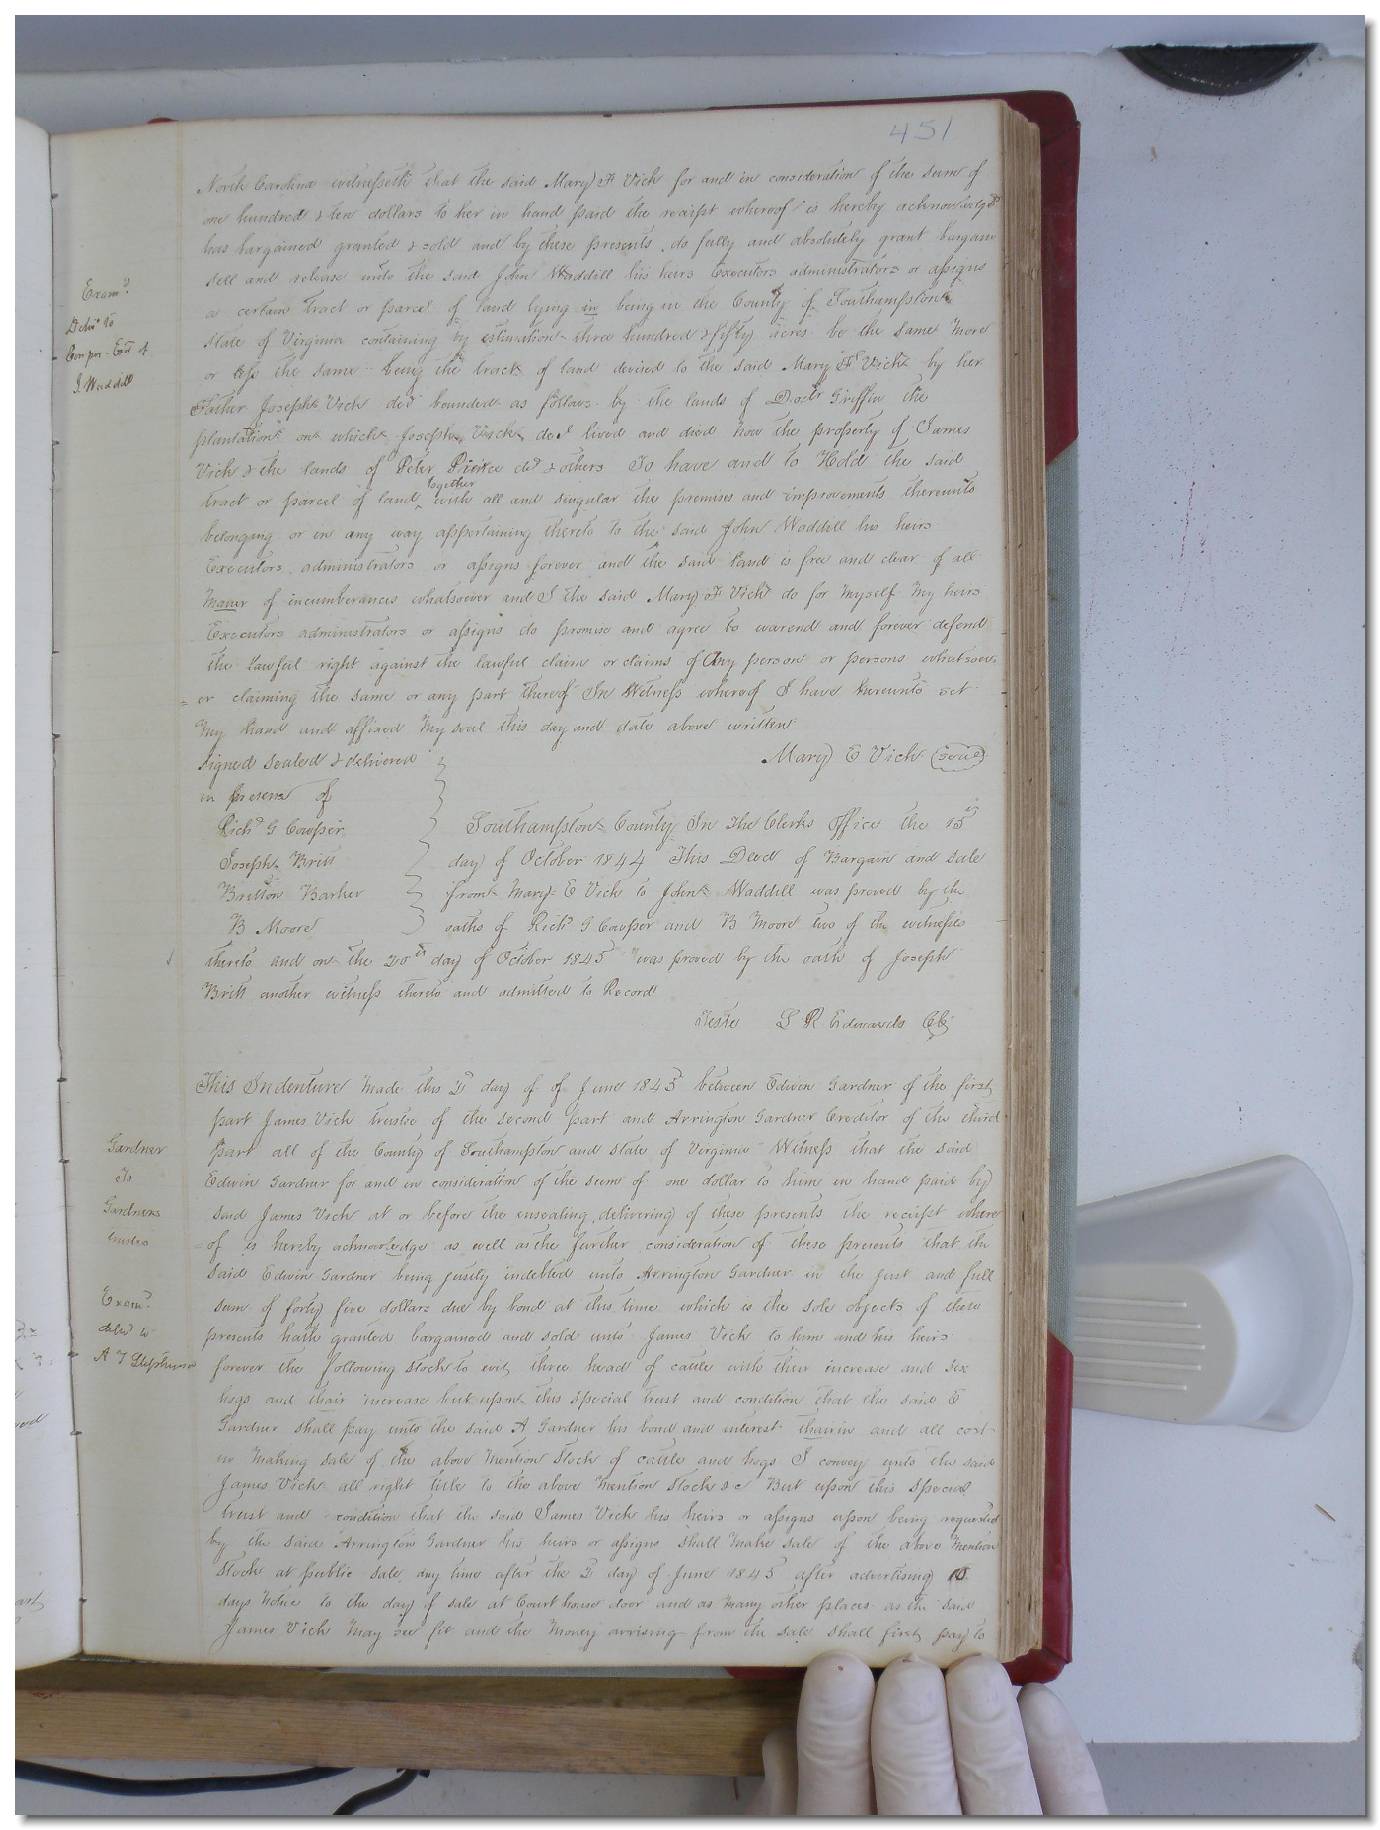 451
North Carolina witnesseth that the said Mary F Vick for and in consideration of the sum of
one hundred & ten dollars to her in hand paid the receipt whereof is hereby acknowledged
has bargained granted & sold and by these presents do fully and absolutely grant bargain
sell and release unto the said John Waddill his heirs Executors administrators or assigns
a certain tract or parcel of land lying in being in the County of Southampton
State of Virginia containing by estimation three hundred & fifty acres be the same more
or less the same being the track of land devised to the said Mary F Vick by her
Father Joseph Vick decd bounded as follows by the lands of Doctr Griffin the
plantation on which Joseph Vick decd lived and died now the property of James
Vick & the lands of Peter Pierce decd & others To have and to Hold the said
tract or parcel of land together with all and singular the premises and improvements thereunto
belonging or in any way appertaining thereto to the said John Waddill his heirs
Executors administrators or assigns forever and the said land is free and clear of all
maner of incumberances whatsoever and I the said Mary F Vick do for myself my heirs
Executors administrators or assigns do promise and agree to warend and forever defend
the lawful right against the lawful claim or claims of any person or persons whatsoev=
=er claiming the same or any part thereof In Witness whereof I have hereunto set
my hand and affixed my seal this day and date above written
Signed sealed & delivered
Mary E Vick (seal)
in presence of
Richd G Cowper
Joseph Britt
Britton Barker
B Moore
Southampton County In The Clerks Office the 15th
day of October 1844 This Deed of Bargain and Sale
from Mary E Vick to John Waddill was proved by the
oaths of Richd G Cowper and B Moore two of the witnesses
thereto and on the 20th day of October 1845 was proved by the oath of Joseph
Britt another witness thereto and admitted to Record
Teste L R Edwards Clk
Examd
Delivd to
J. Waddill
This Indenture made this 2d day of of June 1845 between Edwin Gardner of the first
part James Vick trustee of the second part and Arrington Gardner Creditor of the third
part all of the County of Southampton and State of Virginia Witness that the said
Edwin Gardner for and in consideration of the sum of one dollar to him in hand paid by
said James Vick at or before the ensealing delivering of these presents the receipt where
=of is hereby acknowledge as well as the further consideration of these presents that the
said Edwin Gardner being justly indebted unto Arrington Gardner in the just and full
sum of forty five dollars due by bond at this time which is the sole objects of these
presents hath granted bargained and sold unto James Vick to him and his heirs
forever the following stock to wit three head of cattle with their increase and six
hogs and thair increase but upon this special trust and condition that the said E
Gardner shall pay unto the said A Gardner his bond and interest thairin and all cost
in making sale of the above mention stock of cattle and hogs I convey unto the said
James Vick all right title to the above mention stock &c But upon this special
trust and condition that the said James Vick his heirs or assigns upon being requested
by the said Arrington Gardner his heirs or assigns shall make sale of the above mention
stock at public sale any time after the 2d day of June 1845 after advertising 10
days notice to the day of sale at Court house door and as many other places as the said
James Vick may see fit and the money arrising from the sale shall first pay to
Gardner
To
Gardners
trustee
Examd
deld to
A T Stephenson